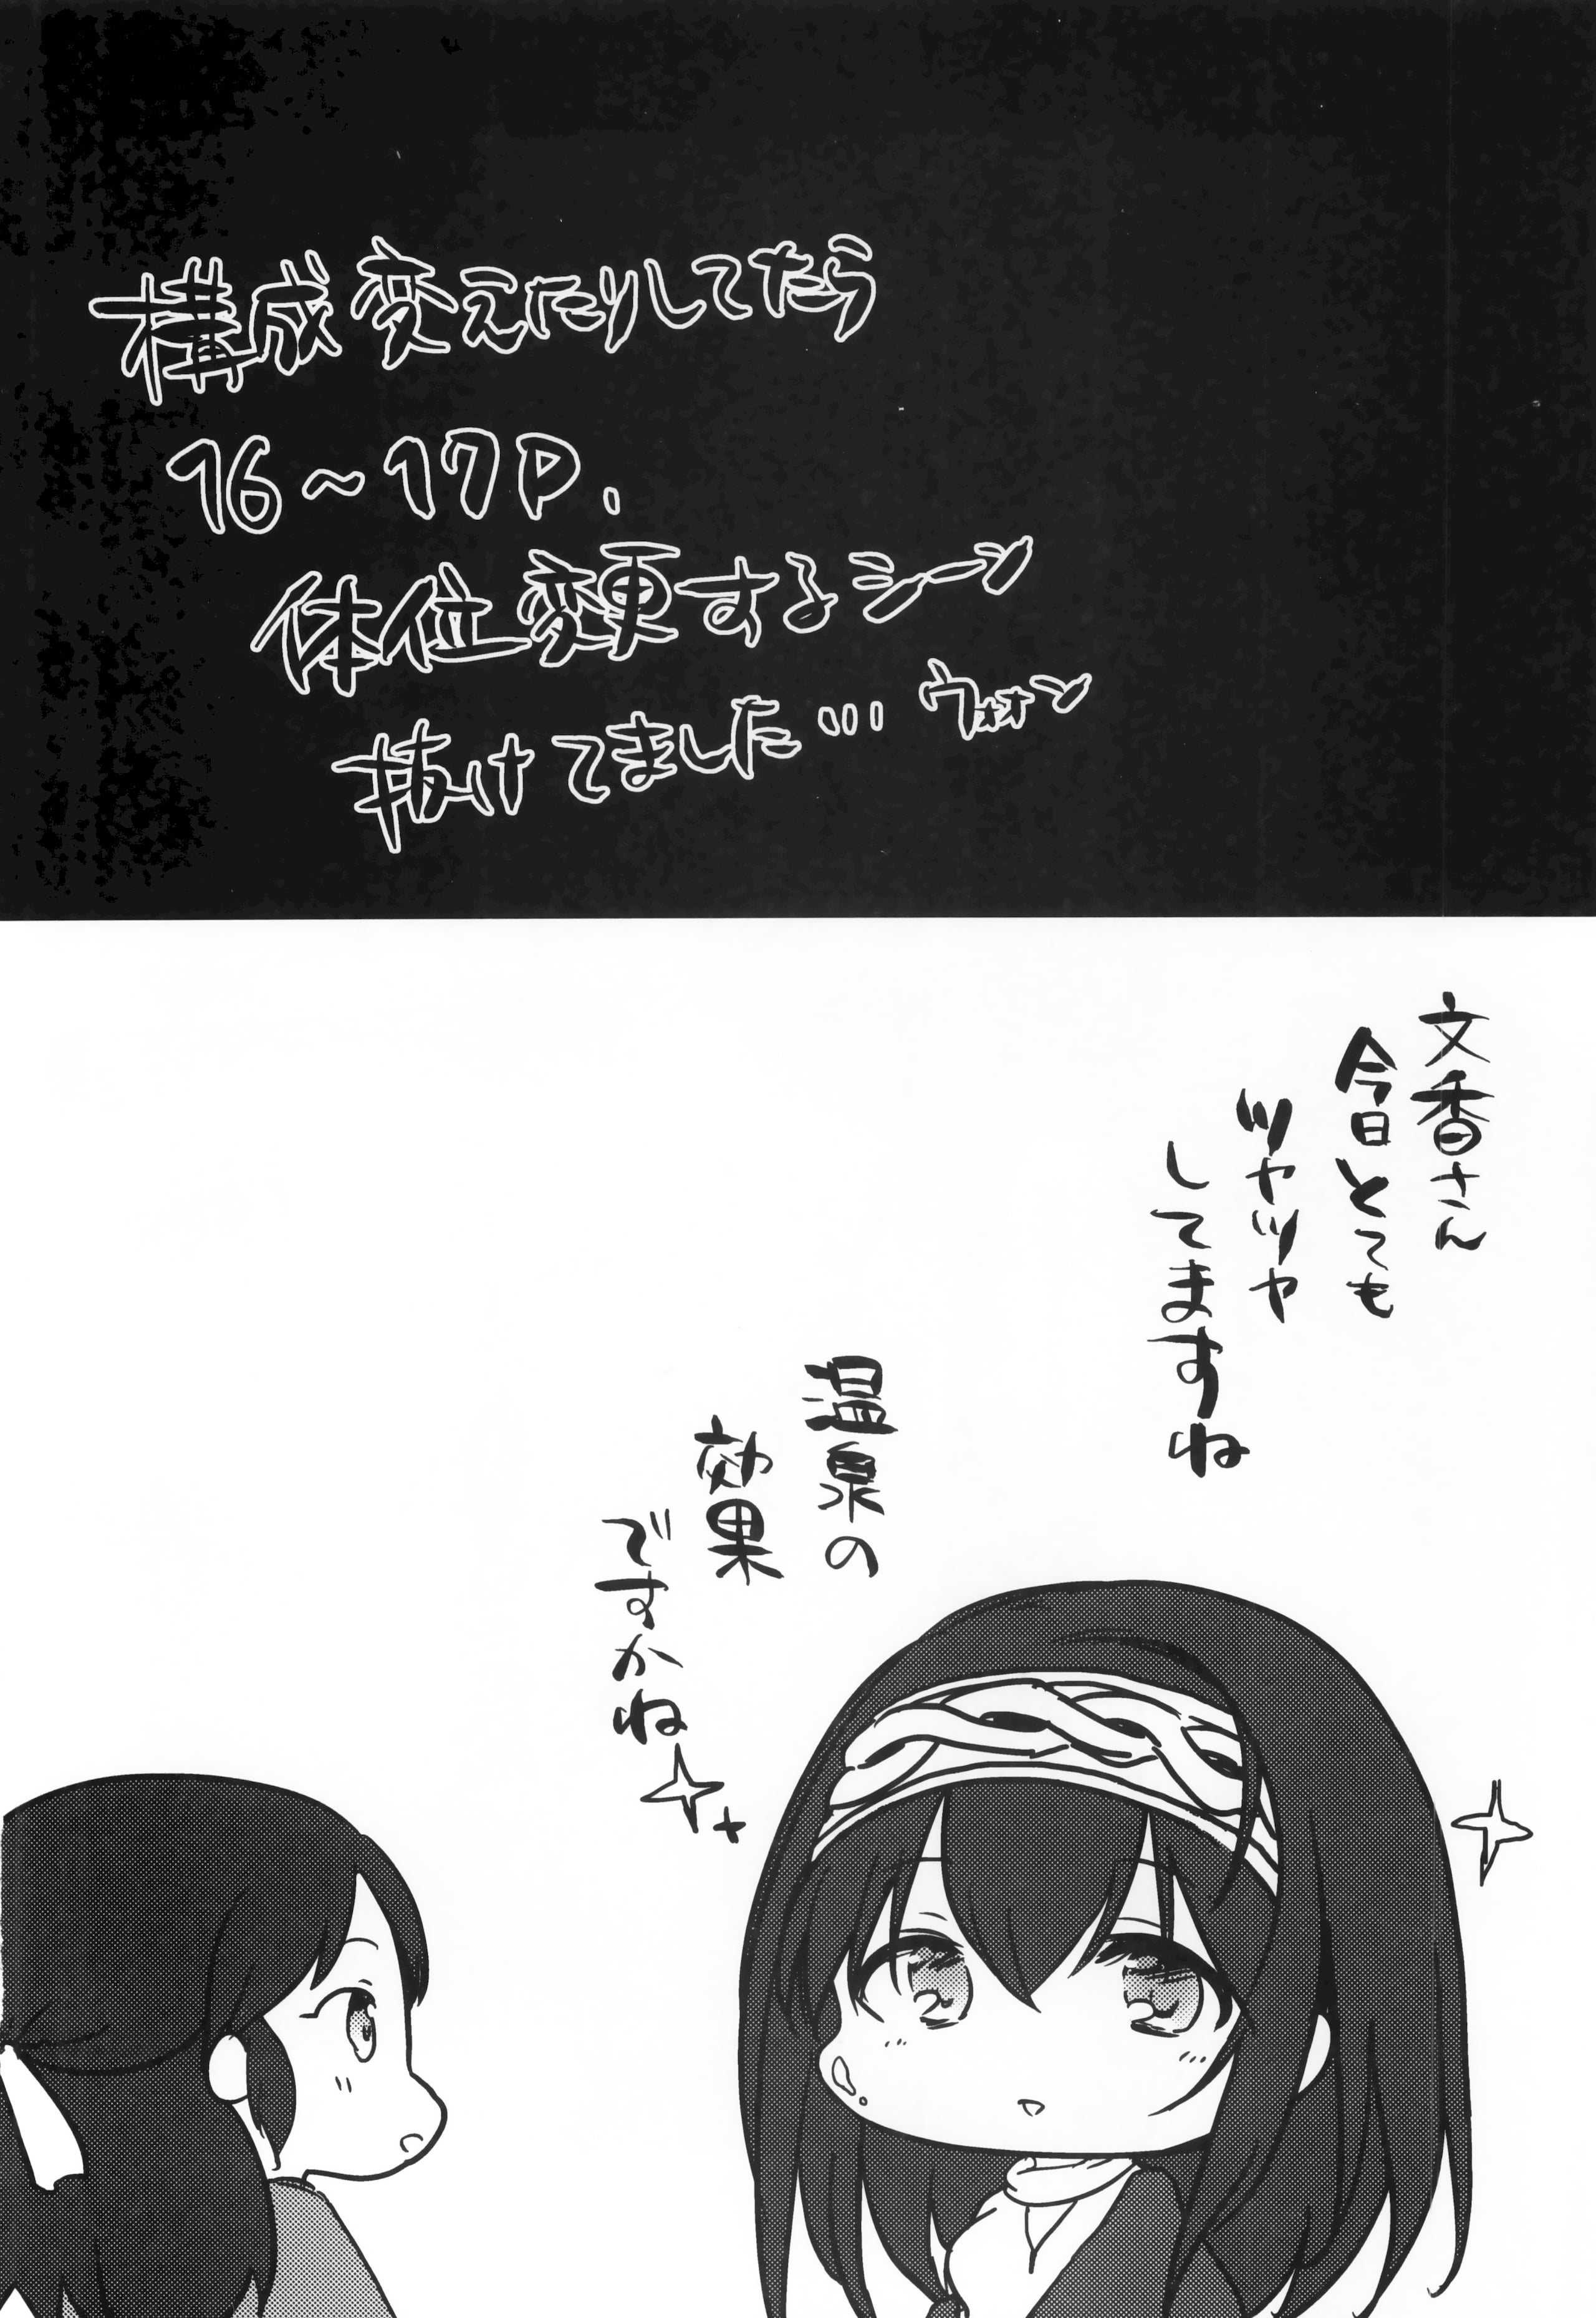 構成変えたりしてたら
16~17P.
体位変更するシーン
抜けてました… ウォォン
文香さん
今日とても
ツヤツヤ
してますね
温泉の
効果
ですかね